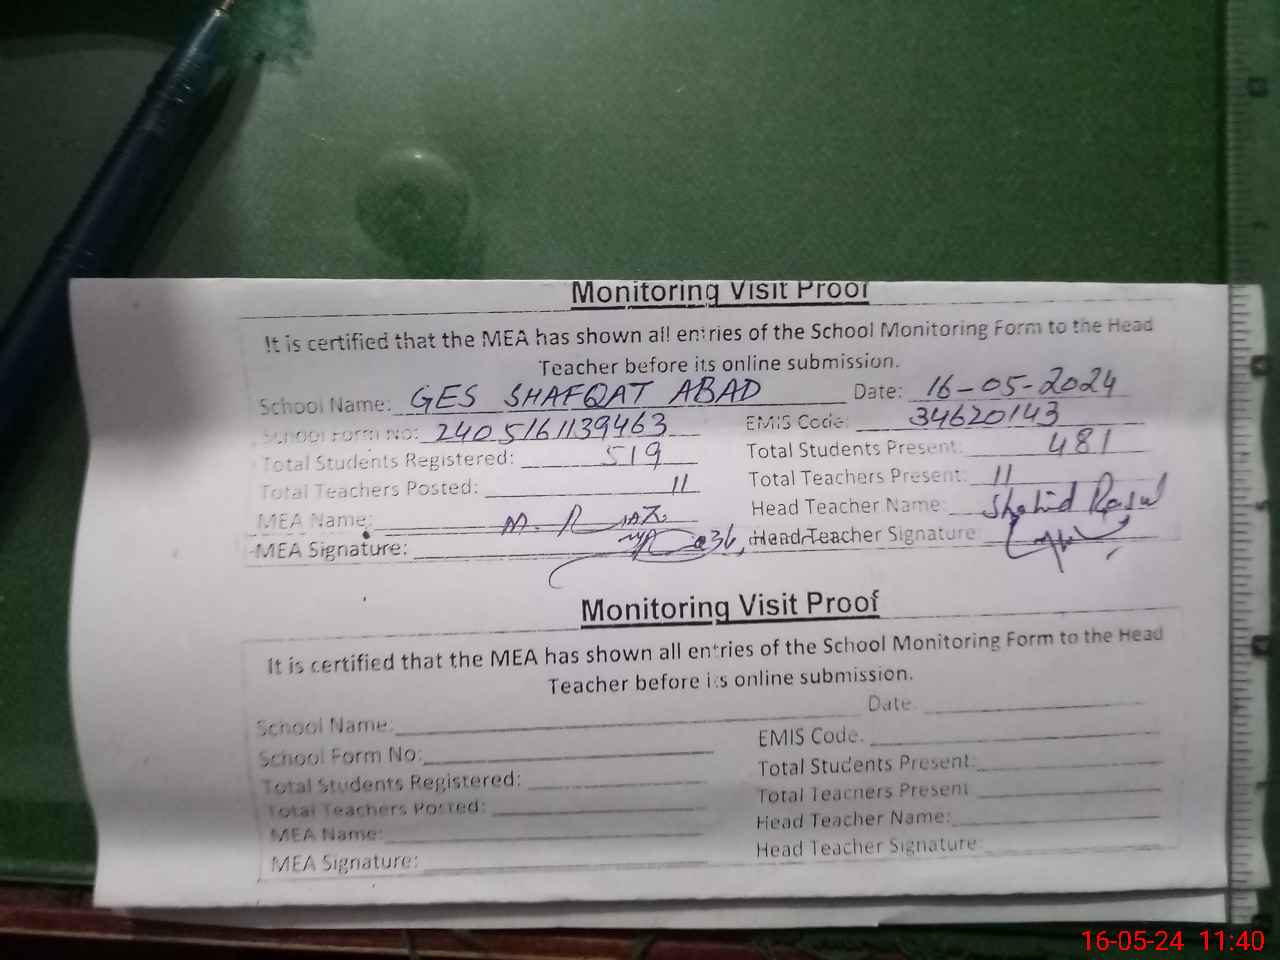 Monitoring Visit Proof
It is certified that the MEA has shown all entries of the School Monitoring Form to the Head
Teacher before its online submission.
School Name: GES SHAFQAT ABAD Date: 16-05-2024
School Form No: 2405161139463 EMIS Code: 34620143
Total Students Registered: 519 Total Students Present: 481
Total Teachers Posted: 11 Total Teachers Present: 11
MEA Name: M. Riaz Head Teacher Name: Shahid Rasul
MEA Signature: 036, Head Teacher Signature
Monitoring Visit Proof
It is certified that the MEA has shown all entries of the School Monitoring Form to the Head
Teacher before its online submission.
School Name: Date
School Form No: EMIS Code.
Total Students Registered: Total Students Present:
Total Teachers Posted: Total Teachers Present
MEA Name: Head Teacher Name:
MEA Signature: Head Teacher Signature:
16-05-24 11:40